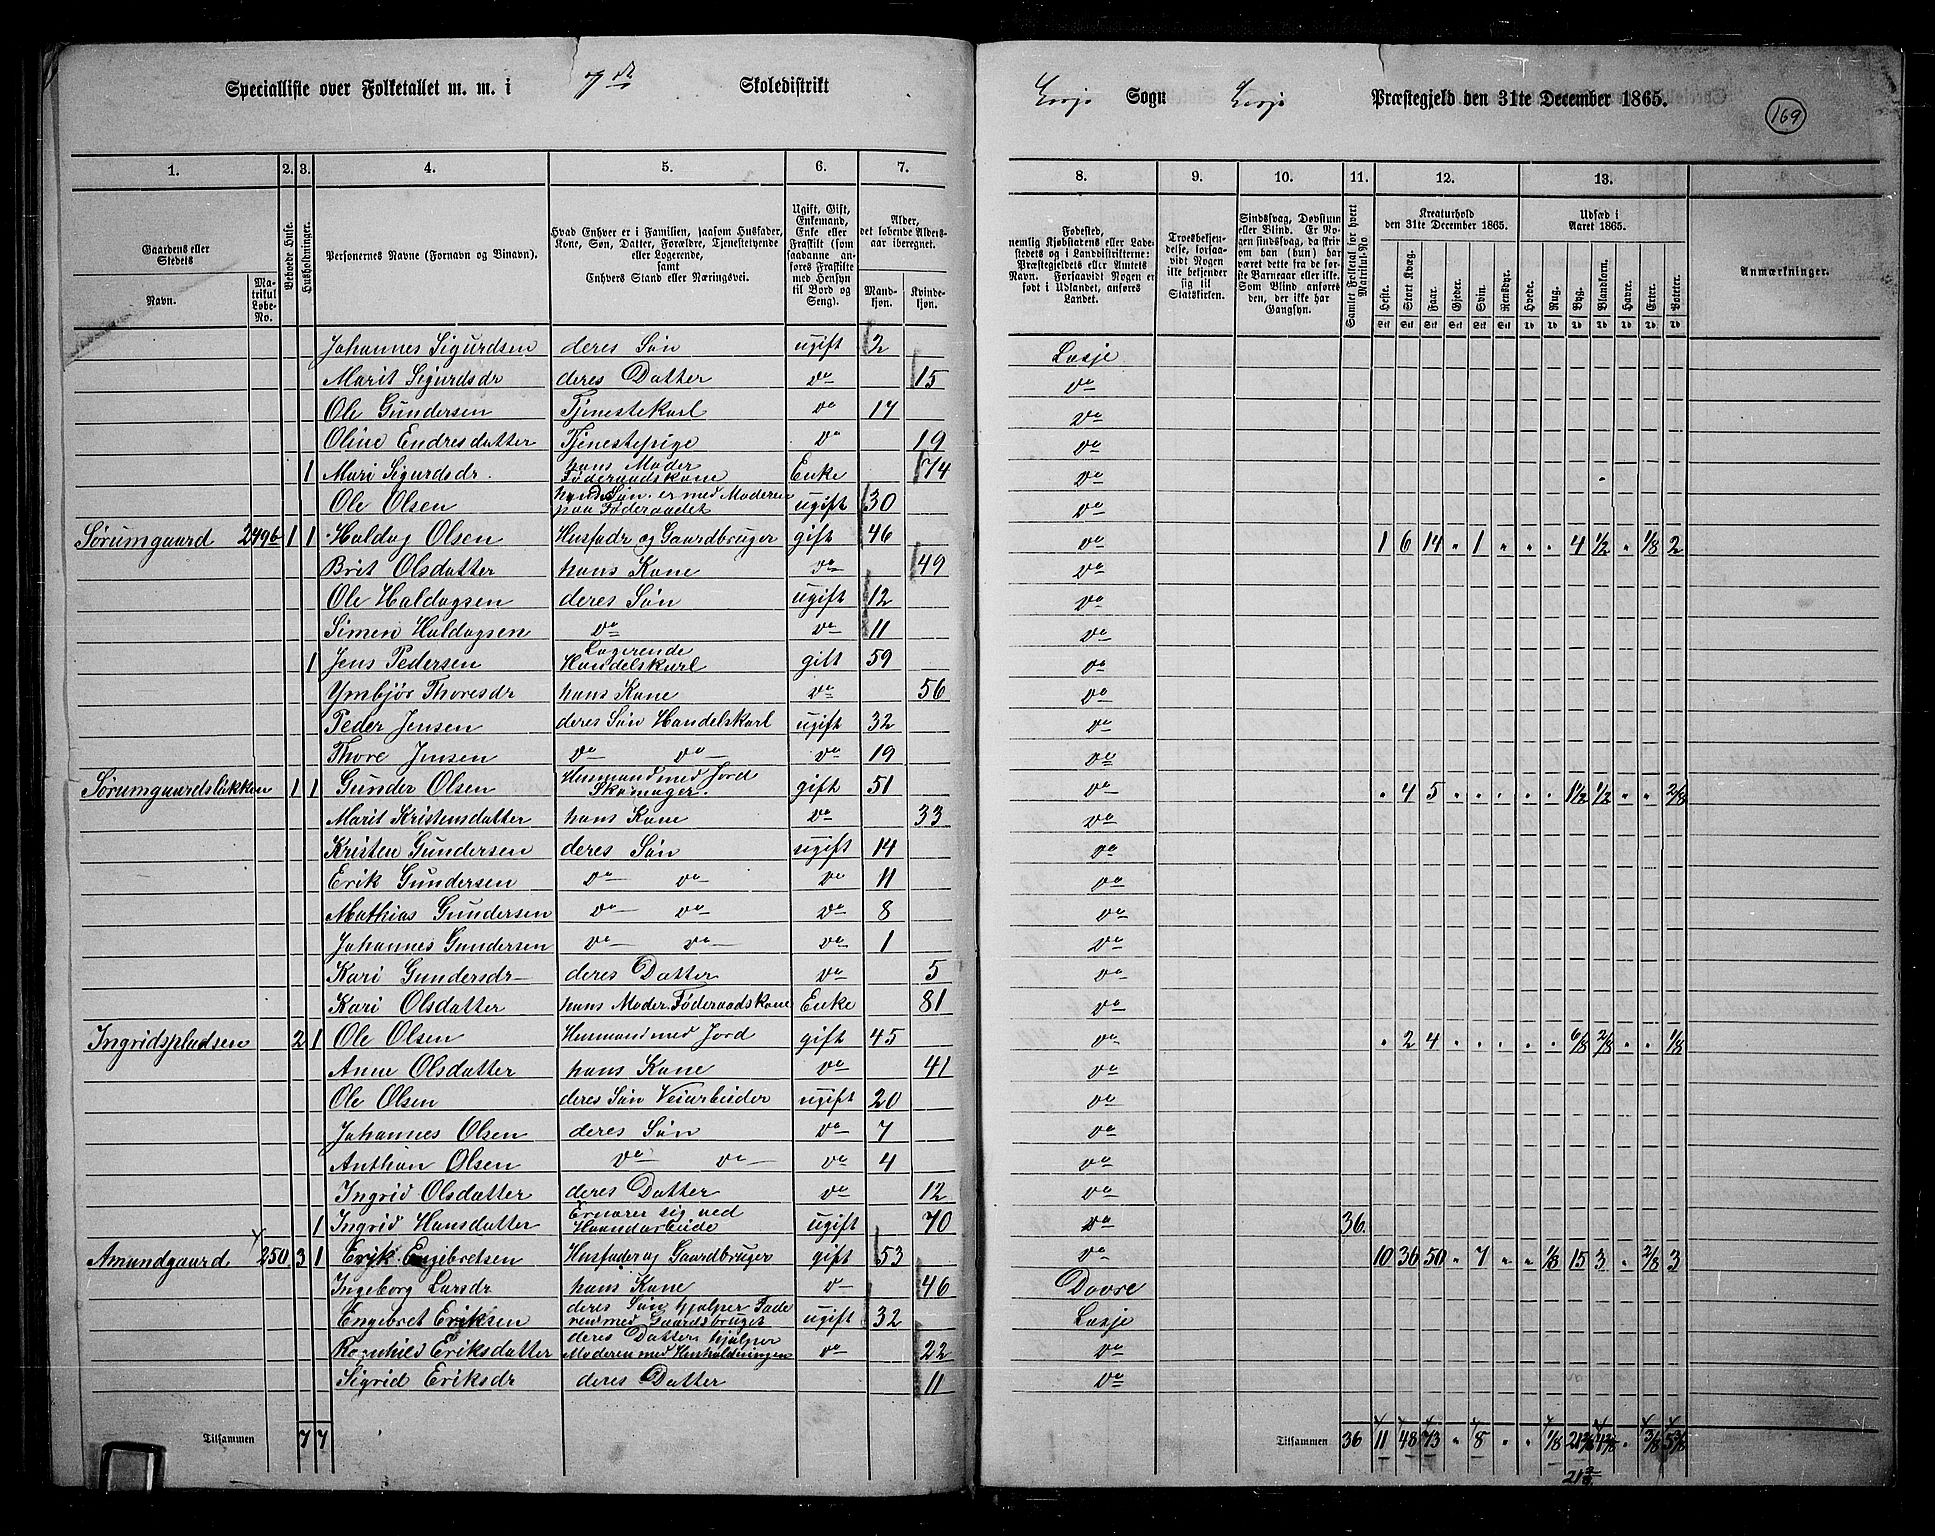 Specialliste over Folketallet m. m. i 7de Skoledistrikt
Lesje Sogn Lesje Præstegjeld den 31te December 1865.
169
1. 2. 3. 4. 5. 6. 7. 8. 9. 10. 11. 12. 13.
Gaardens eller Stedets
Navn.
Matrikul Løbe-No.
Beboede Huse.
Husholdninger.
Personernes Navne (Fornavn og Tilnavn).
Hvad Enhver er i Familien, saasom Husfader, Kone, Søn, Datter, Forældre, Tjenestetyende eller Logerende, samt Enhvers Stand eller Næringsvei.
Ugift, Gift, Enkemand, Enke eller Fraskilt (som saadanne anføres Fraskilte med Hensyn til Bord og Seng).
Alder, det løbende Aldersaar iberegnet.
Mandkjøn. Kvindekjøn.
Fødested, nemlig Kjøbstadens eller Ladestedets og i Landdistrikterne: Præstegjeldets eller Amtets Navn. Forsaavidt Nogen er født i Udlandet, anføres Landet.
Troesbekjendelse, forsaavidt Nogen ikke bekjender sig til Statskirken.
Sindssvag, Døvstum eller Blind. Er Nogen sindssvag, da skrives om han (hun) har været dette fra de første Barneaar eller ikke. Som Blind anføres den, der ikke har Gangsyn.
Samlet Folketal for hvert Matrikul-No.
Kreaturhold den 31te December 1865.
Heste. Stort Kvæg. Faar. Gjeder. Svin. Rensdyr.
Udsæd i Aaret 1865.
Hvede. Rug. Byg. Blandkorn. Havre. Erter. Poteter.
Anmærkninger.
Johannes Sigurdsen deres Søn ugift 2 Lesje
Marit Sigurdsdr deres Datter do 15 do
Ole Gundersen Tjenestekarl do 17 do
Oline Endresdatter Tjenestepige do 19 do
1 Mari Sigurdsdr. hans Moder Føderaadskone Enke 74 do
Ole Olsen hendes Søn er med Moderen paa Føderaadet ugift 30 do
Sørumgaard 249b 1 1 Haldog Olsen Husfadr og Gaardbruger gift 46 do 1 6 14 " 1 " " " 4 1/2 " 1/8 2
Brit Olsdatter hans Kone do 49 do
Ole Haldogsen deres Søn ugift 12 do
Simen Haldogsen do do 11 do
1 Jens Pedersen Logerende Handelskarl gift 59 do
Ymbjør Thoresdr hans Kone do 56 do
Peder Jensen deres Søn Handelskarl ugift 32 do
Thore Jensen do do do 19 do
Sørumgaardsløkken 1 1 Gunder Olsen Husmand med Jord Skomager. gift 51 do " 4 5 " " " " " 1 1/2 1/2 " " 2/8
Marit Kristensdatter hans Kone do 33 do
Kristen Gundersen deres Søn ugift 14 do
Erik Gundersen do do do 11 do
Mathias Gundersen do do do 8 do
Johannes Gundersen do do do 1 do
Kari Gundersdr deres Datter do 5 do
Kari Olsdatter hans Moder. Føderaadskone Enke 81 do
Ingridspladsen 2 1 Ole Olsen Husmand med Jord gift 45 do " 2 4 " " " " " 6/8 2/8 " " 1/8
Anne Olsdatter hans Kone do 41 do
Ole Olsen deres Søn Veiarbeider ugift 20 do
Johannes Olsen deres Søn do 7 do
Anthon Olsen do do do 4 do
Ingrid Olsdatter deres Datter do 12 do
1 Ingrid Hansdatter Ernærer sig ved Haandarbeide ugift 70 do 36.
Amundgaard 250 3 1 Erik Engebretsen Husfader og Gaardbruger gift 53 do 10 36 50 " 7 " " 1/8 15 3 " 2/8 3
Ingeborg Larsdr hans Kone do 46 Dovre
Engebret Eriksen deres Søn hjælper Faderen med Gaardsbruget ugift 32 Lesje
Ragnhild Eriksdatter deres Datter hjælper Moderen med Husholdningen do 22 do
Sigrid Eriksdr deres Datter 11 do
Tilsammen 7 7
Tilsammen 36 11 48 73 " 8 " " 1/8 21 2/8 4 2/8 " 3/8 5 3/8
21 2/8